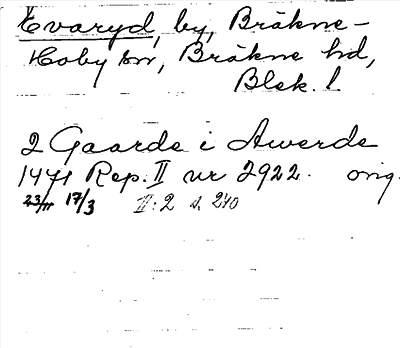 Evaryd, by, Bräkne-
Hoby sn, Bräkne hd,
Blek. l
2 Gaarde i Awerde
1471 Rep. II nr 2922. orig.
23/11 17/3 II:2 s. 240